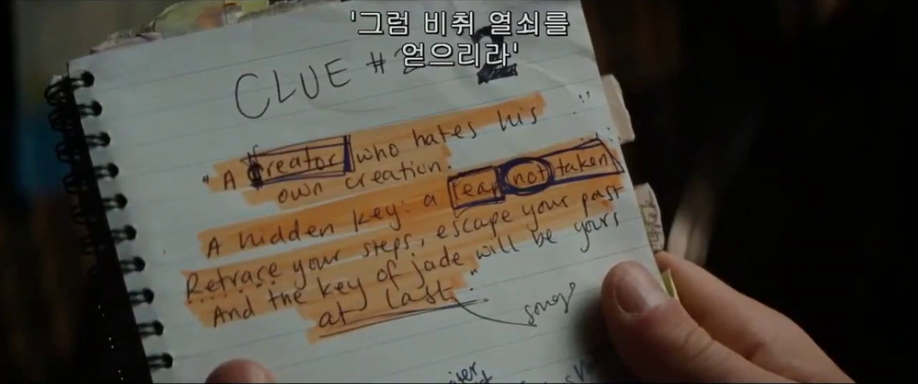 '그럼 비취 열쇠를
얻으리라'
CLUE #2
"A creator who hates his
own creation.
A hidden key: a leap not taken
Retrace your steps, escape your past
And the key of jade will be yours
at last."